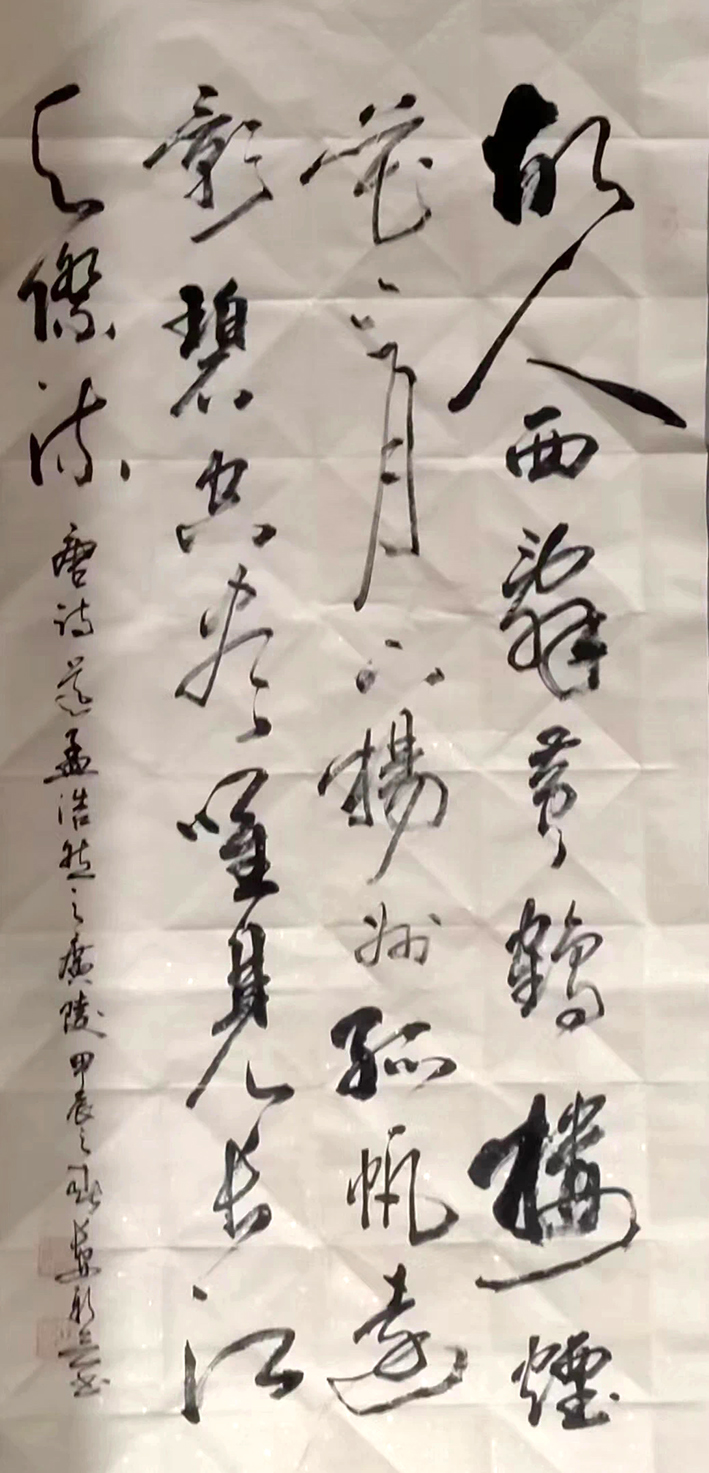 故人西辭黄鶴樓煙
花三月下揚州孤帆遠
影碧空盡唯見長江
天際流 唐诗送孟浩然之廣陵 甲辰之秋